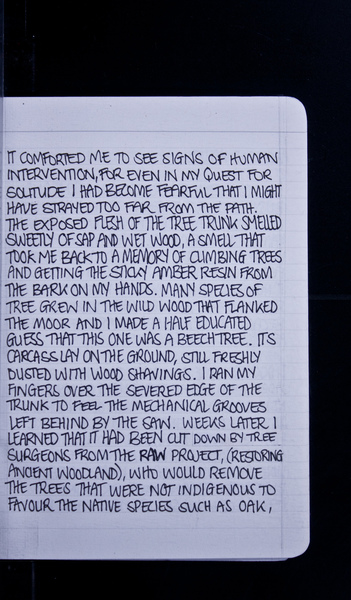 IT COMFORTED ME TO SEE SIGNS OF HUMAN
INTERVENTION, FOR EVEN IN MY QUEST FOR
SOLITUDE I HAD BECOME FEARFUL THAT I MIGHT
HAVE STRAYED TOO FAR FROM THE PATH.
THE EXPOSED FLESH OF THE TREE TRUNK SMELLED
SWEETLY OF SAP AND WET WOOD, A SMELL THAT
TOOK ME BACK TO A MEMORY OF CLIMBING TREES
AND GETTING THE STICKY AMBER RESIN FROM
THE BARK ON MY HANDS. MANY SPECIES OF
TREE GREW IN THE WILD WOOD THAT FLANKED
THE MOOR AND I MADE A HALF EDUCATED
GUESS THAT THIS ONE WAS A BEECH TREE. ITS
CARCASS LAY ON THE GROUND, STILL FRESHLY
DUSTED WITH WOOD SHAVINGS. I RAN MY
FINGERS OVER THE SEVERED EDGE OF THE
TRUNK TO FEEL THE MECHANICAL GROOVES
LEFT BEHIND BY THE SAW. WEEKS LATER I
LEARNED THAT IT HAD BEEN CUT DOWN BY TREE
SURGEONS FROM THE RAW PROJECT, (RESTORING
ANCIENT WOODLAND), WHO WOULD REMOVE
THE TREES THAT WERE NOT INDIGENOUS TO
FAVOUR THE NATIVE SPECIES SUCH AS OAK,